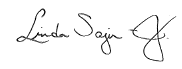 Linda Sajin